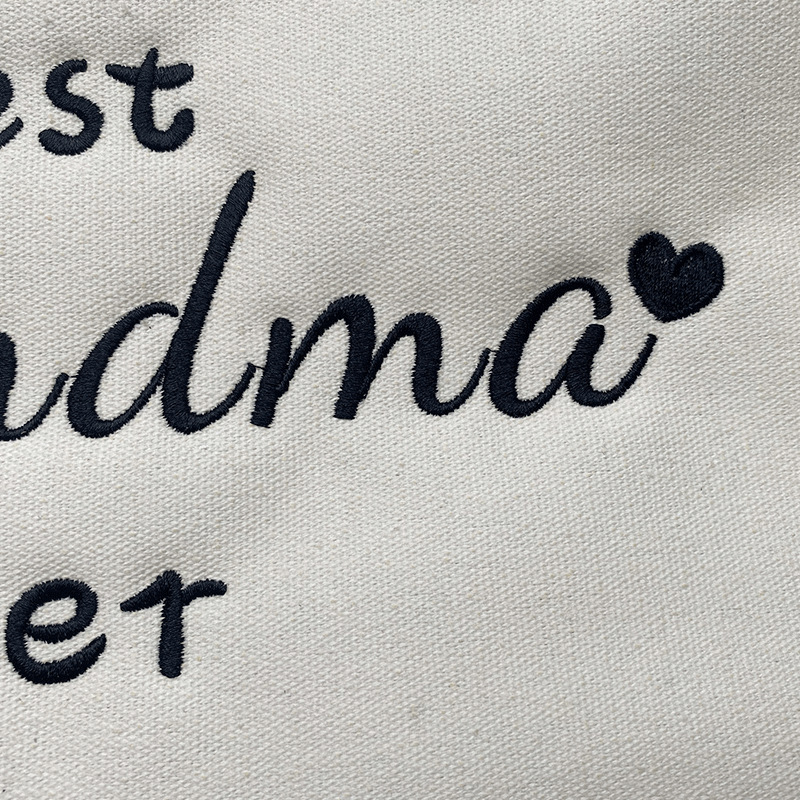 est
ndma
er